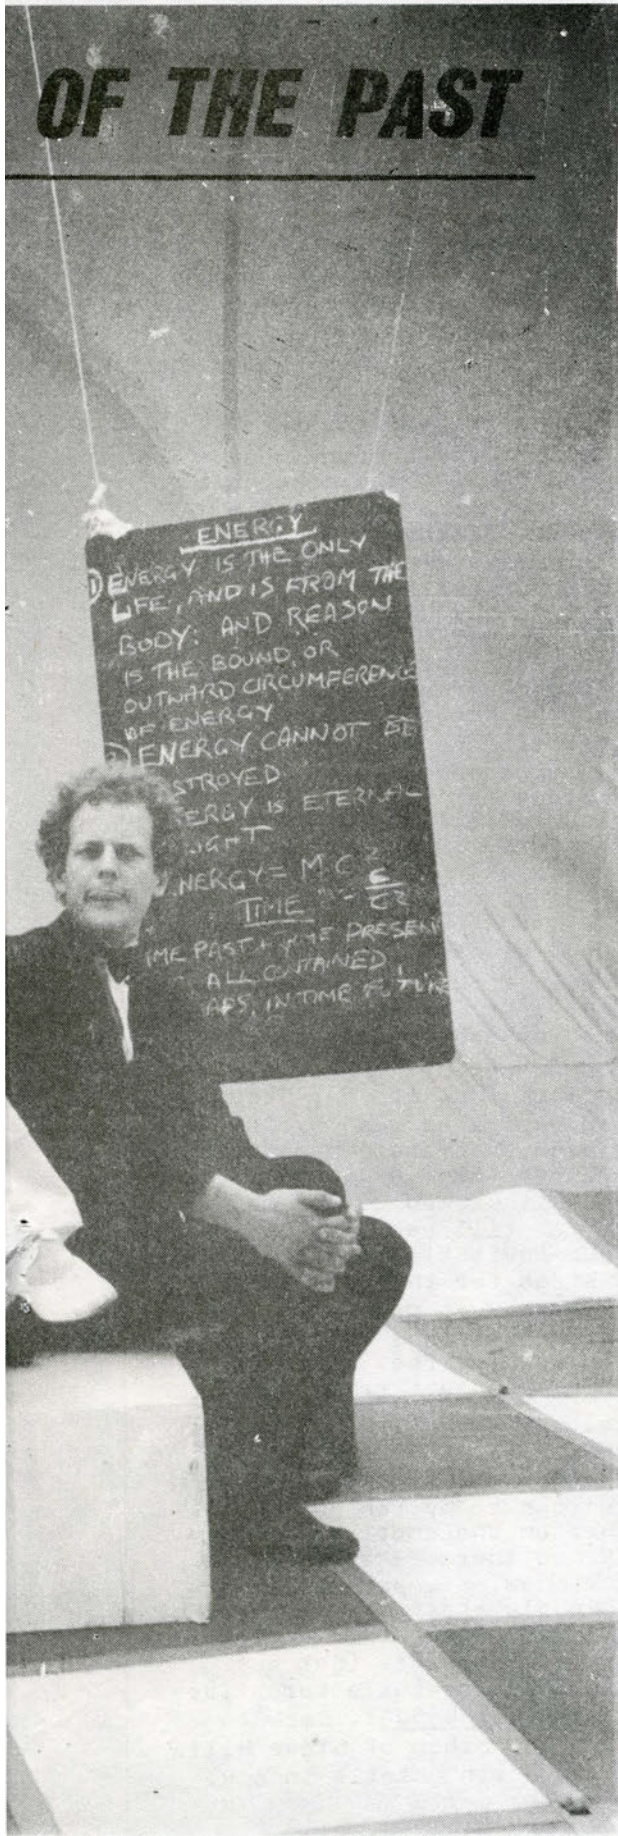 OF THE PAST
ENERGY
1) ENERGY IS THE ONLY
LIFE, AND IS FROM THE
BODY: AND REASON
IS THE BOUND, OR
OUTWARD CIRCUMFERENCE
OF ENERGY
ENERGY CANNOT BE
STROYED
ERGY IS ETERNAL
IGHT
NERGY = MC²
TIME
IME PAST + TIME PRESENT
ALL CONTAINED
APS, IN TIME FUTURE